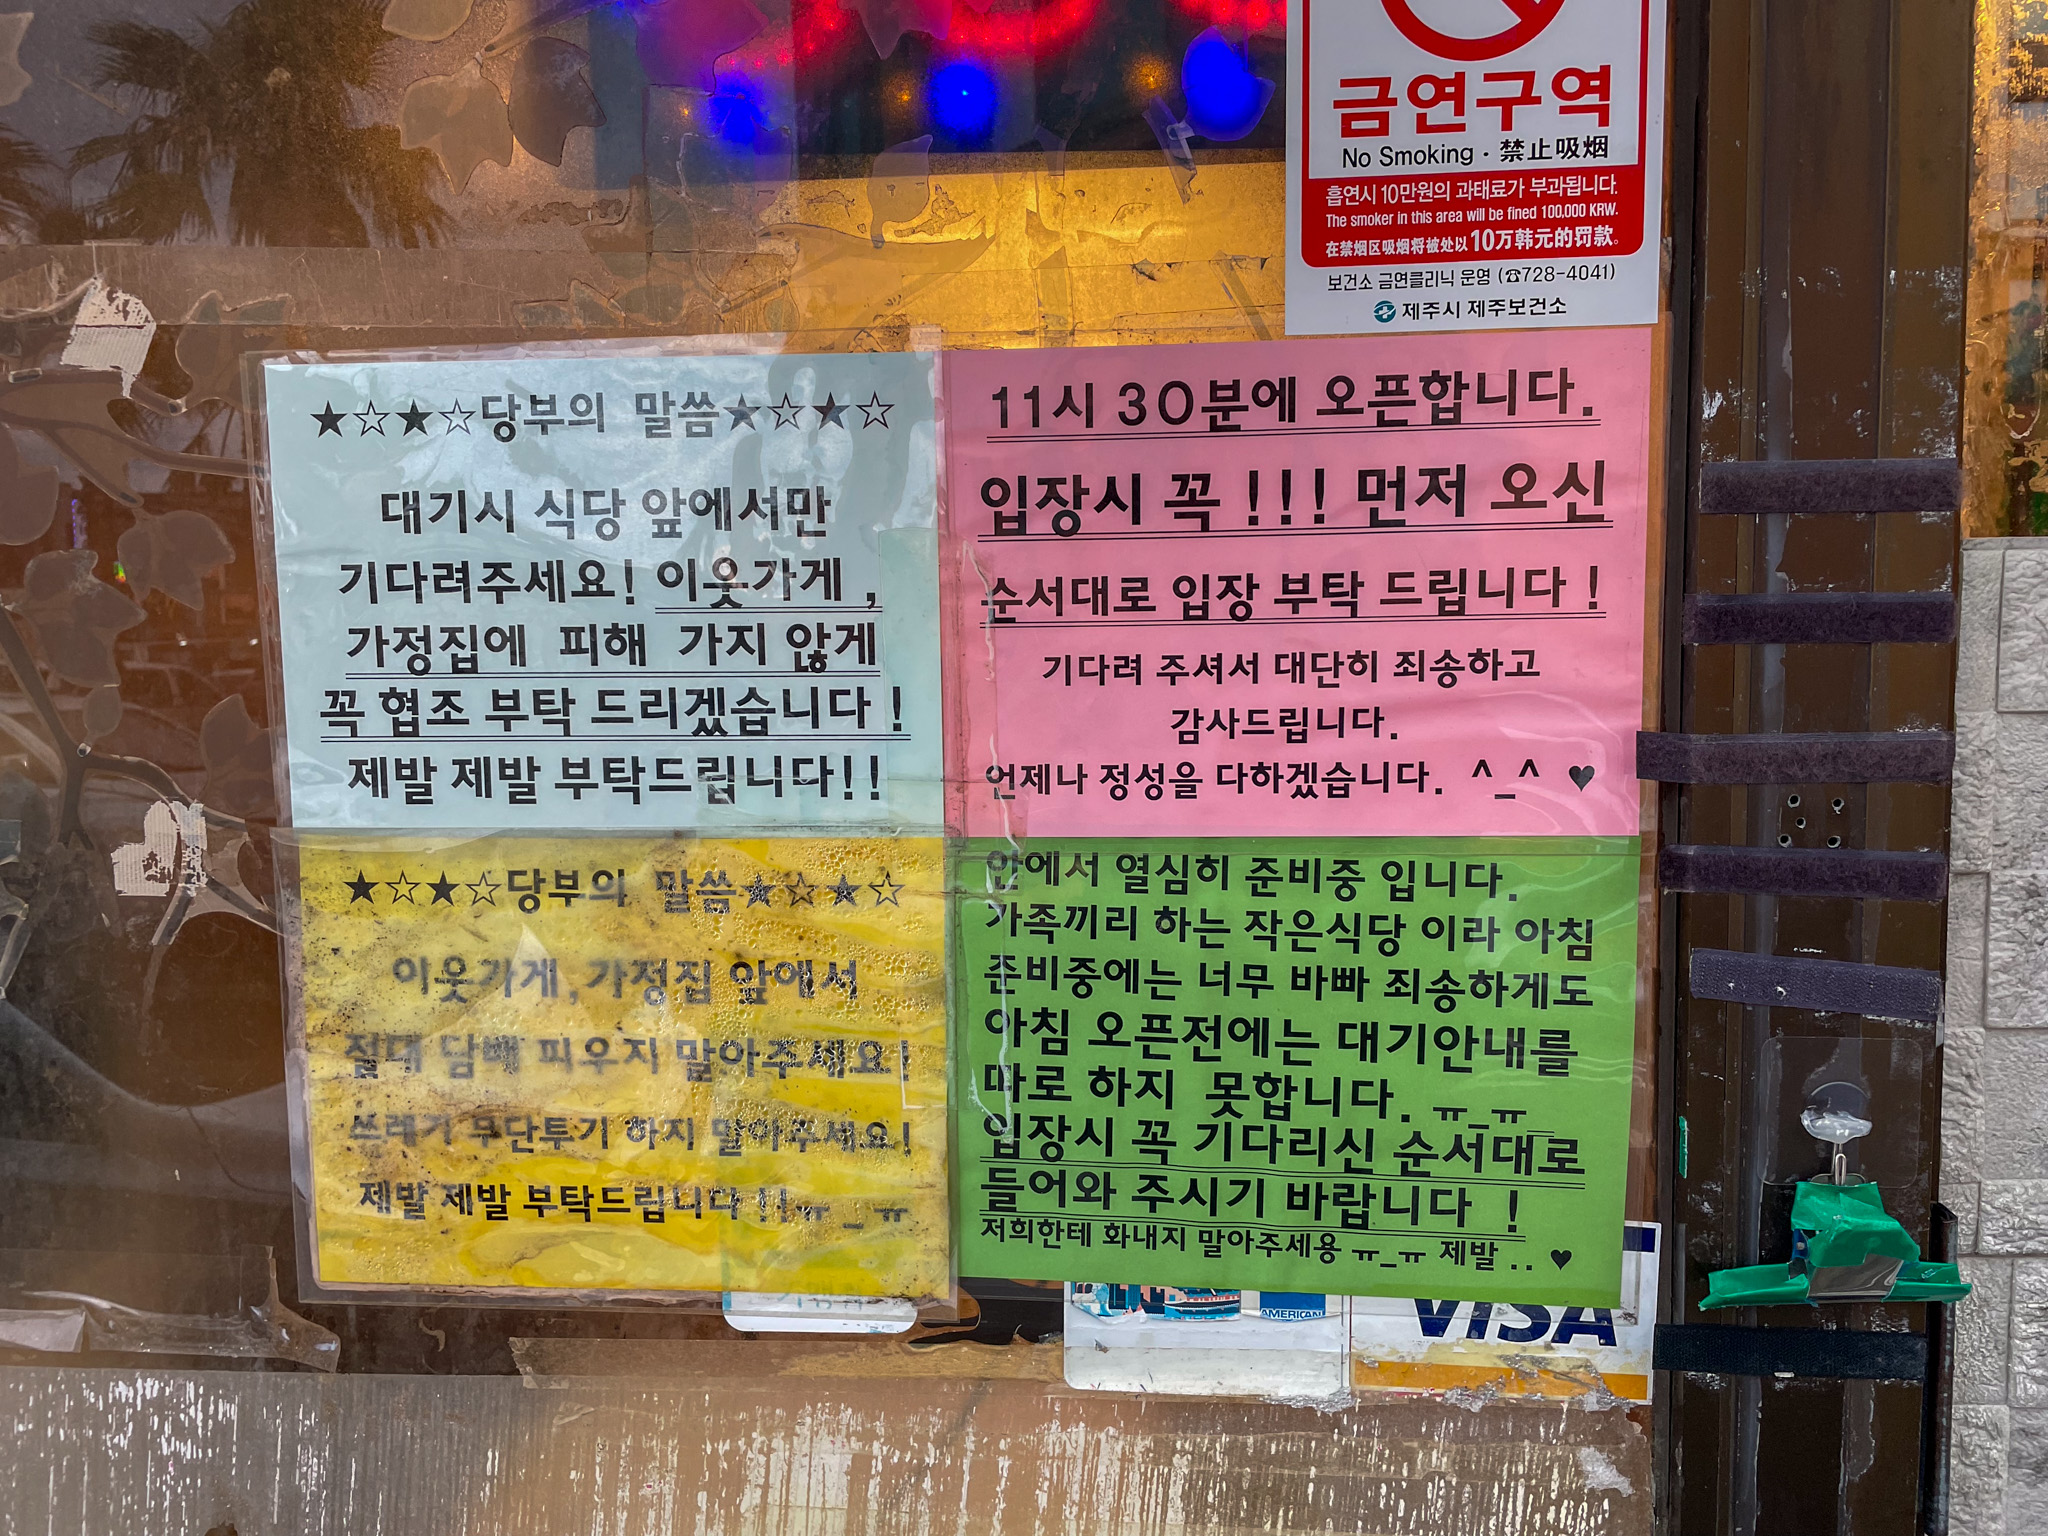 금연구역
No Smoking · 禁止吸烟
흡연시 10만원의 과태료가 부과됩니다.
The smoker in this area will be fined 100,000 KRW.
在禁烟区吸烟将被处以 10万韩元的罚款。
보건소 금연클리닉 운영 (☎728-4041)
제주시 제주보건소
★☆★☆당부의 말씀★☆★☆
대기시 식당 앞에서만
기다려주세요! 이웃가게 ,
가정집에 피해 가지 않게
꼭 협조 부탁 드리겠습니다 !
제발 제발 부탁드립니다!!
11시 30분에 오픈합니다.
입장시 꼭 !!! 먼저 오신
순서대로 입장 부탁 드립니다 !
기다려 주셔서 대단히 죄송하고
감사드립니다.
언제나 정성을 다하겠습니다. ^_^ ♥
★☆★☆당부의 말씀★☆★☆
이웃가게,가정집 앞에서
절대 담배 피우지 말아주세요!
쓰레기 무단투기 하지 말아주세요!
제발 제발 부탁드립니다 !!ㅠ_ㅠ
안에서 열심히 준비중 입니다.
가족끼리 하는 작은식당 이라 아침
준비중에는 너무 바빠 죄송하게도
아침 오픈전에는 대기안내를
따로 하지 못합니다. ㅠ_ㅠ_
입장시 꼭 기다리신 순서대로
들어와 주시기 바랍니다 !
저희한테 화내지 말아주세용 ㅠ_ㅠ 제발 .. ♥
AMERICAN
VISA